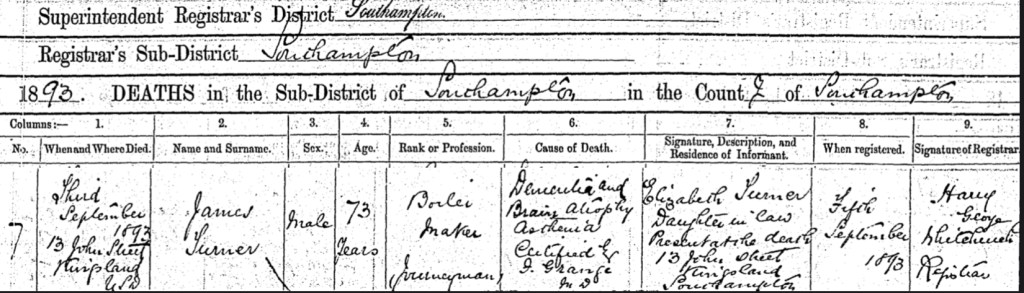 Superintendent Registrar's District Southampton.
Registrar's Sub-District Southampton
1893. DEATHS in the Sub-District of Southampton in the County of Southampton
Columns:— 1. 2. 3. 4. 5. 6. 7. 8. 9.
No. When and Where Died. Name and Surname. Sex. Age. Rank or Profession. Cause of Death. Signature, Description, and Residence of Informant. When registered. Signature of Registrar
7
Third
September
1893
13 John Street
Kingsland
U.S.D
James
Turner
Male
73
Years
Boiler
maker
Journeyman
Dementia and
Brain Atrophy
Asthenia
Certified by
J. Grange
M D
Elizabeth Turner
Daughter in law
Present at the death
13 John Street
Kingsland
Southampton
Fifth
September
1893
Harry
George
Whitchurch
Registrar